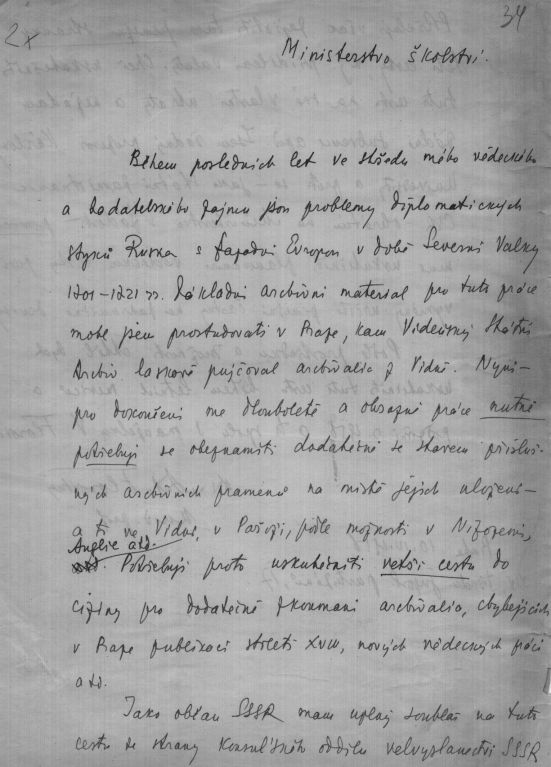 2x
34
Ministerstvo školství.
Během posledních let ve středu mého vědeckého
a badatelského zajmu jsou problemy diplomatických
styků Ruska s Zapadní Evropou v době Severní Valky
1701–1721 Základní archivní material pro tuto práce
mohl jsem prostudovati v Praze, kam Videňský Státní
Archiv laskavě pujčoval archivalia z Vidně. Nyní–
pro dokončení me dlouholeté a obsažné práce nutně
potřebuji se obeznamiti dodatečně se stavem přísluš–
ných archivních pramenů na mistě jejich uložení–
a ti ve Vidni, v Paříži, podle možnosti v Nizozemí,
Anglie atd.
Potřebuji proto uskutečniti vetší cestu do
ciziny pro dodatečné zkoumaní archivalia, chybějících
v Praze publikací stoleti XVIII, nových vědeckých prací
atd.
Jako občan SSSR mam uplný souhlas na tuto
cestu ze strany konsulśního oddílu velvyslanectví SSSR